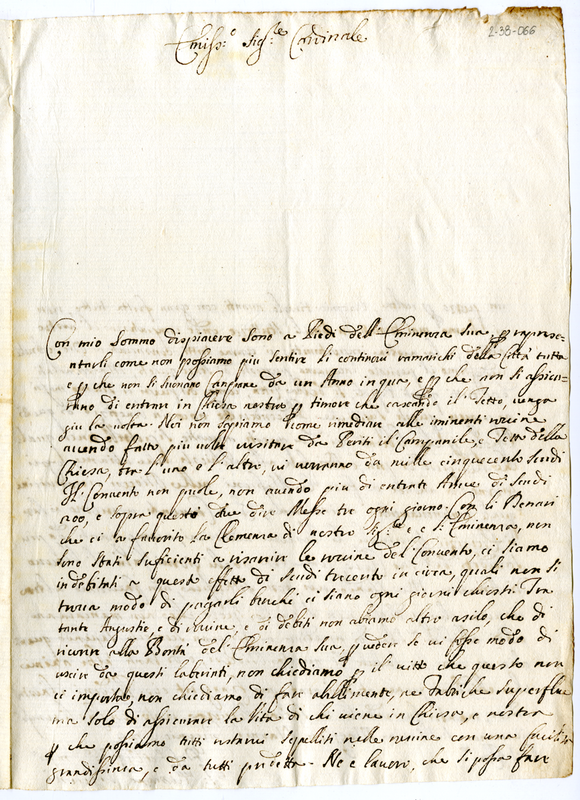 2-38-066
Emiss.e Sig.le Cardinale
Con mio sommo dispiacere sono a Piedi dell'Eminenza sua, p rapprese-
ntarli come non possiamo piu sentire li continovi ramarichi della Città tutta
e p che non si suonano Canpane da un Anno in qua, e p che non si assicu-
rano di entrare in Chiesa nostra p timore che cascando il Tetto, venga
giu la volta. Noi non sapiamo come rimediare alle iminenti rovine
avendo fatto piu volte visitare da Periti il Campanile, e Tetto della
Chiesa, tra l'uno e l'altro, vi verranno da mille cinquecento scudi
Il Convento non puole, non avendo piu di entrate Annue di scudi
200, e sopra questo due dire Messe tre ogni giorno. Con li Denari
che ci a favorito la Clemenza di nostro Sig.re e S. Eminenza, non
sono stati suficienti a risarire le rovine del Convento, ci siamo
indebitati a questo effetto di scudi trecento in circa, quali non si
trova modo di pagarli benché ci siano ogni giorni chiesti. Tra
tante Angustie, e di rovine, e di debiti non abiamo altro asilo, che di
ricorre alla Bontà dell'Eminenza sua, p vedere se vi fosse modo di
uscire da questi laberinti, non chiediamo p il vitto che questo non
ci importa, non chiediamo di fare abillimente, ne Fabriche superflue
ma solo di assicurare la Vita di chi viene in Chiesa, e nostra
p che possiamo tutti restarvi sepelliti nelle rovine con una facilità
grandissima, e da tutti predetta. Ne e lavoro, che si possa fare